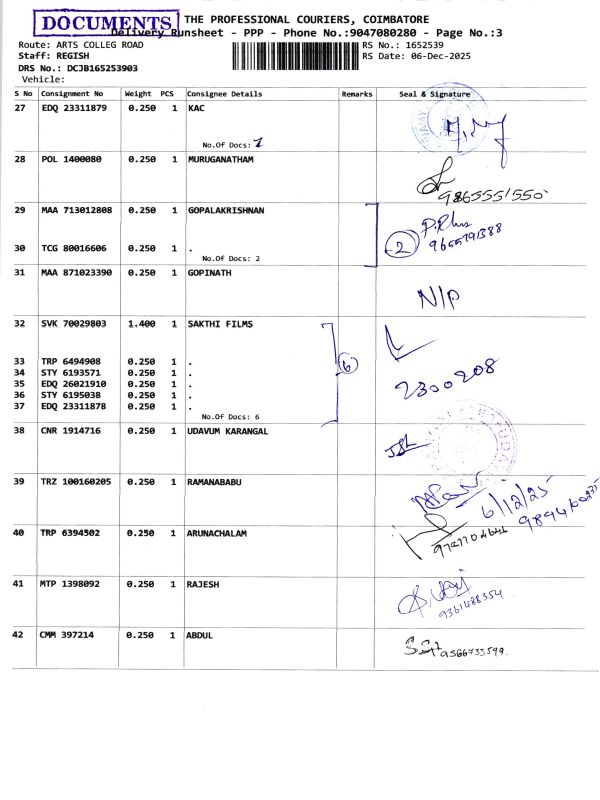 DOCUMENTS
THE PROFESSIONAL COURIERS, COIMBATORE
Delivery Runsheet - PPP - Phone No.:9047080280 - Page No.:3
Route: ARTS COLLEG ROAD
RS No.: 1652539
Staff: REGISH
RS Date: 06-Dec-2025
DRS No.: DCJB165253903
Vehicle:
S No Consignment No Weight PCS Consignee Details Remarks Seal & Signature
27 EDQ 23311879 0.250 1 KAC
No.Of Docs: 1
28 POL 1400080 0.250 1 MURUGANATHAM
9865551550
29 MAA 713012808 0.250 1 GOPALAKRISHNAN
30 TCG 80016606 0.250 1 .
2
No.Of Docs: 2
31 MAA 871023390 0.250 1 GOPINATH
N/P
32 SVK 70029803 1.400 1 SAKTHI FILMS
33 TRP 6494908 0.250 1 .
6
34 STY 6193571 0.250 1 .
35 EDQ 26021910 0.250 1 .
2300208
36 STY 6195038 0.250 1 .
37 EDQ 23311878 0.250 1 .
No.Of Docs: 6
38 CNR 1914716 0.250 1 UDAVUM KARANGAL
39 TRZ 100160205 0.250 1 RAMANABABU
6/12/25
40 TRP 6394502 0.250 1 ARUNACHALAM
41 MTP 1398092 0.250 1 RAJESH
9361488354
42 CMM 397214 0.250 1 ABDUL
9566733599.